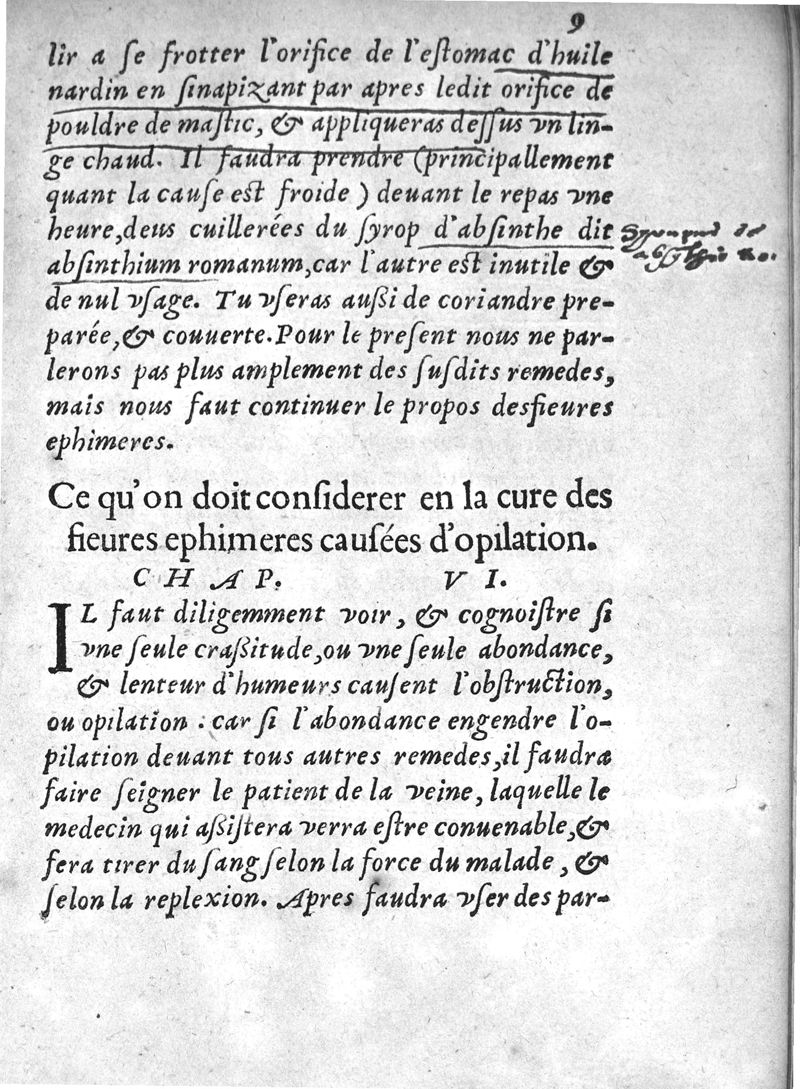 9
lir a ſe frotter l'orifice de l'eſtomac d'huile
nardin en ſinapizant par apres ledit orifice de
pouldre de maſtic, & appliqueras deſſus vn lin-
ge chaud. Il faudra prendre (principallement
quant la cauſe eſt froide) deuant le repas vne
heure, deus cuillerées du ſyrop d'abſinthe dit
abſinthium romanum, car l'autre eſt inutile &
de nul vſage. Tu vſeras auſsi de coriandre pre-
parée, & couuerte. Pour le preſent nous ne par-
lerons pas plus amplement des ſuſdits remedes,
mais nous faut continuer le propos des fieures
ephimeres.
Ce qu'on doit conſiderer en la cure des
fieures ephimeres cauſées d'opilation.
CHAP. VI.
IL faut diligemment voir, & cognoiſtre ſi
vne ſeule craſsitude, ou vne ſeule abondance,
& lenteur d'humeurs cauſent l'obſtruction,
ou opilation : car ſi l'abondance engendre l'o-
pilation deuant tous autres remedes, il faudra
faire ſeigner le patient de la veine, laquelle le
medecin qui aſsiſtera verra eſtre conuenable, &
fera tirer du ſang ſelon la force du malade, &
ſelon la replexion. Apres faudra vſer des par-